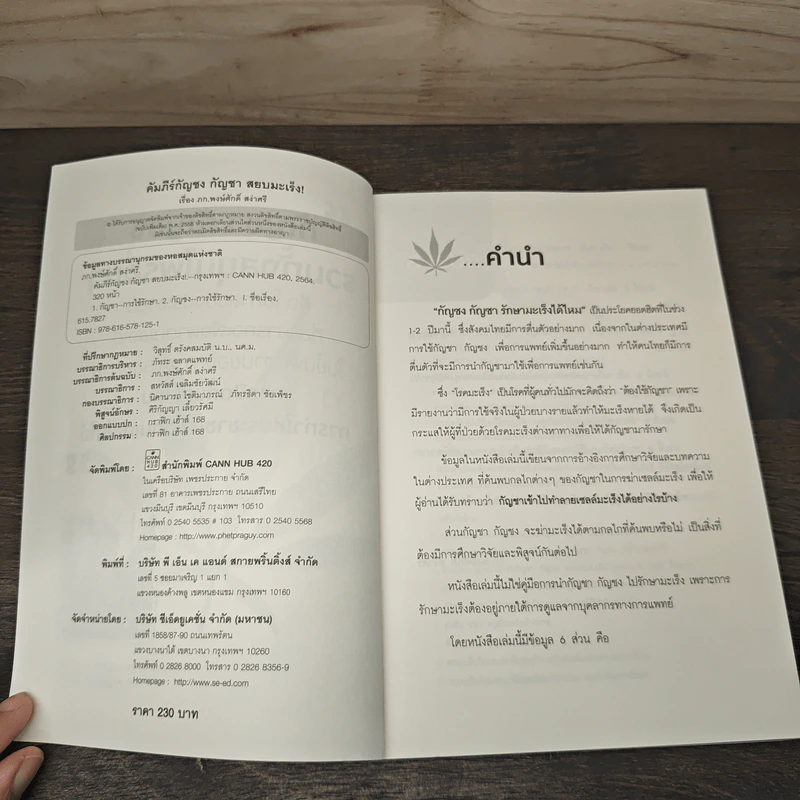 คัมภีร์กัญชง กัญชา สยบมะเร็ง!
เรื่อง ภก.พงษ์ศักดิ์ สง่าศรี
© ได้รับการอนุญาตจัดพิมพ์จากเจ้าของลิขสิทธิ์ตามกฎหมาย สงวนลิขสิทธิ์ตามพระราชบัญญัติลิขสิทธิ์
(ฉบับเพิ่มเติม) พ.ศ. 2558 ห้ามลอกเลียนส่วนใดส่วนหนึ่งของหนังสือเล่มนี้
มิเช่นนั้นจะถือว่าละเมิดลิขสิทธิ์และมีความผิดทางอาญา
ข้อมูลทางบรรณานุกรมของหอสมุดแห่งชาติ
ภก.พงษ์ศักดิ์ สง่าศรี.
คัมภีร์กัญชง กัญชา สยบมะเร็ง!.--กรุงเทพฯ : CANN HUB 420, 2564.
320 หน้า
1. กัญชา--การใช้รักษา. 2. กัญชง--การใช้รักษา. I. ชื่อเรื่อง.
615.7827
ISBN : 978-616-578-125-1
ที่ปรึกษากฎหมาย : วิสุทธิ์ ตรังคสมบัติ น.บ., นศ.ม.
บรรณาธิการบริหาร : ภัทระ ฉลาดแพทย์
บรรณาธิการต้นฉบับ : ภก.พงษ์ศักดิ์ สง่าศรี
บรรณาธิการ : สหวัสส์ เฉลิมชัยวัฒน์
กองบรรณาธิการ : นิศานารถ โชติมาภรณ์ ภัทรธิดา ชัยเพ็ชร
พิสูจน์อักษร : ศิริกัญญา เลี้ยวรัศมี
ออกแบบปก : กราฟิก เฮ้าส์ 168
ศิลปกรรม : กราฟิก เฮ้าส์ 168
จัดพิมพ์โดย : CANN HUB 420 สำนักพิมพ์ CANN HUB 420
ในเครือบริษัท เพชรประกาย จำกัด
เลขที่ 81 อาคารเพชรประกาย ถนนเสรีไทย
แขวงมีนบุรี เขตมีนบุรี กรุงเทพฯ 10510
โทรศัพท์ 0 2540 5535 # 103 โทรสาร 0 2540 5568
Homepage : http://www.phetpraguy.com
พิมพ์ที่ : บริษัท พี เอ็น เค แอนด์ สกายพริ้นติ้งส์ จำกัด
เลขที่ 5 ซอยมาเจริญ 1 แยก 1
แขวงหนองค้างพลู เขตหนองแขม กรุงเทพฯ 10160
จัดจำหน่ายโดย : บริษัท ซีเอ็ดยูเคชั่น จำกัด (มหาชน)
เลขที่ 1858/87-90 ถนนเทพรัตน
แขวงบางนาใต้ เขตบางนา กรุงเทพฯ 10260
โทรศัพท์ 0 2826 8000 โทรสาร 0 2826 8356-9
Homepage : http://www.se-ed.com
ราคา 230 บาท
....คำนำ
"กัญชง กัญชา รักษามะเร็งได้ไหม" เป็นประโยคยอดฮิตที่ในช่วง
1-2 ปีมานี้ ซึ่งสังคมไทยมีการตื่นตัวอย่างมาก เนื่องจากในต่างประเทศมี
การใช้กัญชา กัญชง เพื่อการแพทย์เพิ่มขึ้นอย่างมาก ทำให้คนไทยก็มีการ
ตื่นตัวที่จะมีการนำกัญชามาใช้เพื่อการแพทย์เช่นกัน
ซึ่ง "โรคมะเร็ง" เป็นโรคที่ผู้คนทั่วไปมักจะคิดถึงว่า "ต้องใช้กัญชา" เพราะ
มีรายงานว่ามีการใช้จริงในผู้ป่วยบางรายแล้วทำให้มะเร็งหายได้ จึงเกิดเป็น
กระแสให้ผู้ที่ป่วยด้วยโรคมะเร็งต่างหาทางเพื่อให้ได้กัญชามารักษา
ข้อมูลในหนังสือเล่มนี้เขียนจากการอ้างอิงการศึกษาวิจัยและบทความ
ในต่างประเทศ ที่ค้นพบกลไกต่างๆ ของกัญชาในการฆ่าเซลล์มะเร็ง เพื่อให้
ผู้อ่านได้รับทราบว่า กัญชาเข้าไปทำลายเซลล์มะเร็งได้อย่างไรบ้าง
ส่วนกัญชา กัญชง จะฆ่ามะเร็งได้ตามกลไกที่ค้นพบหรือไม่ เป็นสิ่งที่
ต้องมีการศึกษาวิจัยและพิสูจน์กันต่อไป
หนังสือเล่มนี้ไม่ใช่คู่มือการนำกัญชา กัญชง ไปรักษามะเร็ง เพราะการ
รักษามะเร็งต้องอยู่ภายใต้การดูแลจากบุคลากรทางการแพทย์
โดยหนังสือเล่มนี้มีข้อมูล 6 ส่วน คือ